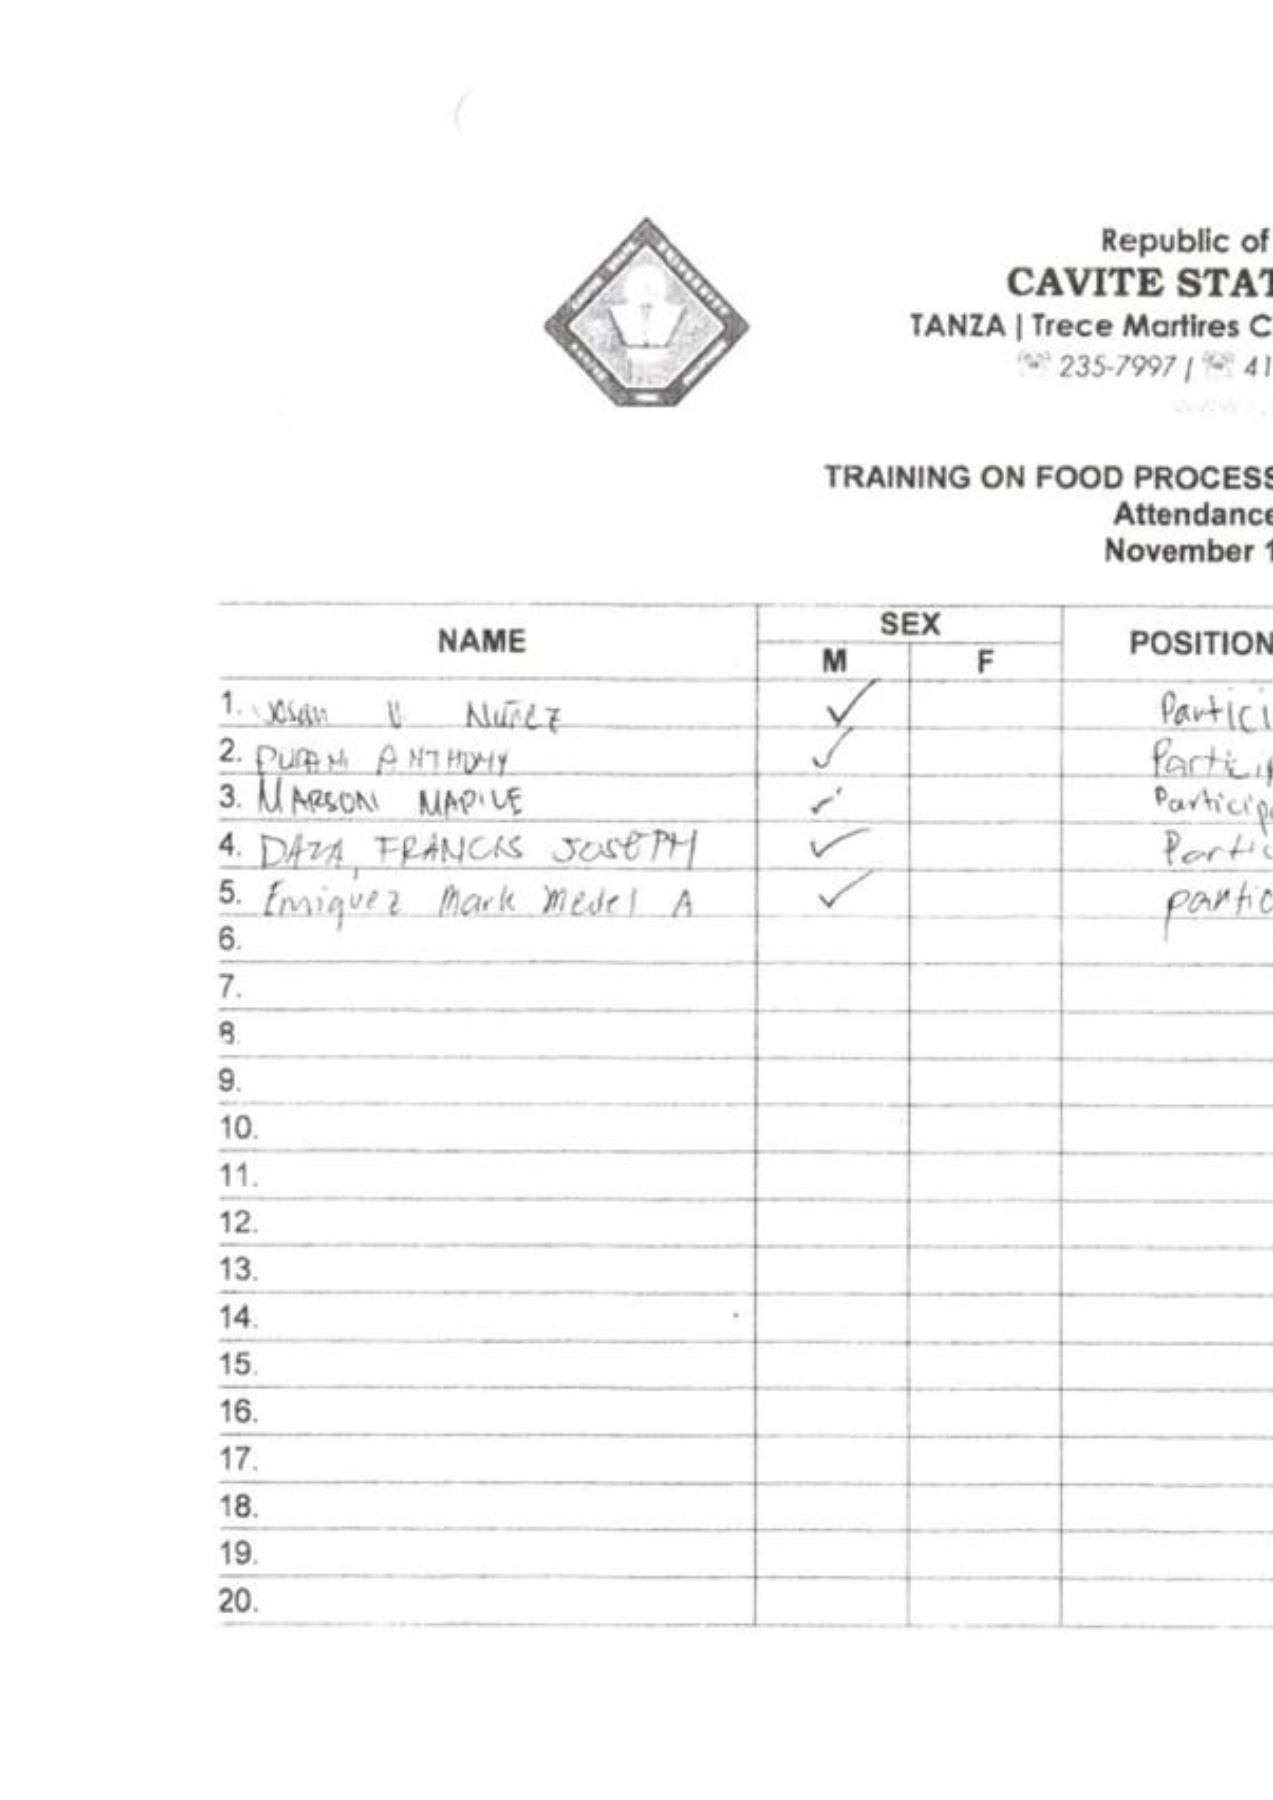 Republic of
CAVITE STAT
TANZA | Trece Martires C
235-7997 | 41
TRAINING ON FOOD PROCESS
Attendance
November 1
NAME SEX POSITION
M F
1. Nuñez Partici
2. ANTHONY Particip
3. MARSON Participa
4. DAZA, FRANCIS JOSEPH Partic
5. Enriquez Mark Medel A partic
6.
7.
8.
9.
10.
11.
12.
13.
14.
15.
16.
17.
18.
19.
20.